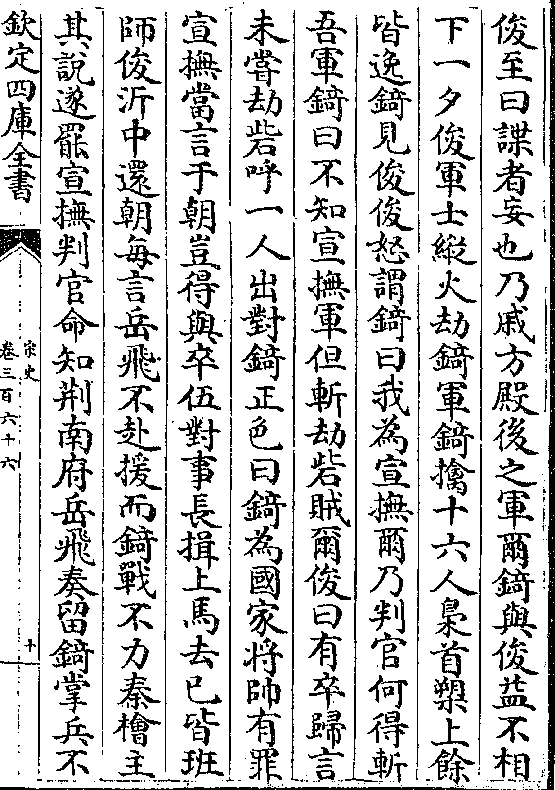 俊至曰諜者妄也乃戚方殿後之軍爾錡與俊益不相
下一夕俊軍士縱火劫錡軍錡擒十六人梟首槊上餘
皆逸錡見俊俊怒謂錡曰我為宣撫爾乃判官何得斬
吾軍錡曰不知宣撫軍但斬劫砦賊爾俊曰有卒歸言
未嘗劫砦呼一人出對錡正色曰錡為國家將帥有罪
宣撫當言于朝豈得與卒伍對事長揖上馬去已皆班
師俊沂中還朝每言岳飛不赴援而錡戰不力秦檜主
其說遂罷宣撫判官命知荆南府岳飛奏留錡掌兵不
欽定四庫全書
宋史
卷三百六十六
十